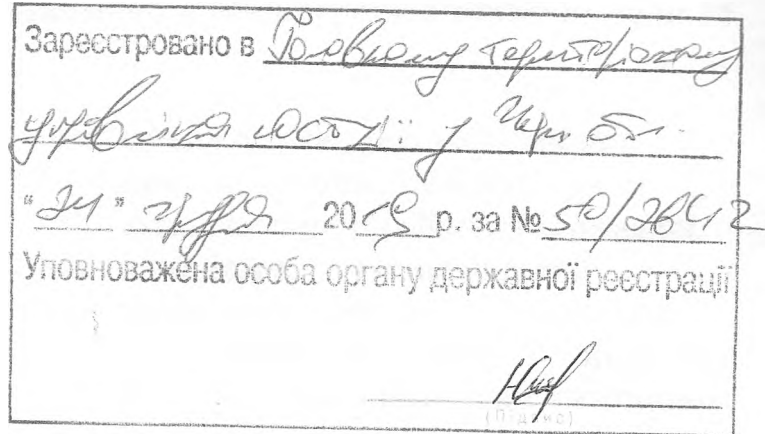 Зареєстровано в Головному територіальному
управлінні юстиції у Черк. обл.
"24" грудня 2019 р. за № 50/2642
Уповноважена особа органу державної реєстрації
(Підпис)